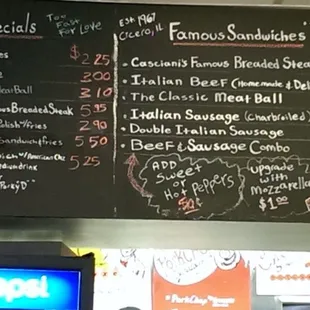 ecials
Too
Fast
For Love
$2.25
2.00
eat Ball 3.10
ous Breaded Steak 5.95
w/fries 2.90
Sandwich w/fries 5.50
5.25
Est. 1967
Cicero, IL
Famous Sandwiches
• Breaded Stea
• Italian Beef (Homemade & Del
• The Classic Meat Ball
• Italian Sausage (Charbroiled)
• Double Italian Sausage
• Beef & Sausage Combo
ADD
Sweet
or
Hot Peppers
50¢
upgrade
with
Mozzarella
$1.00
psi
PorkChop